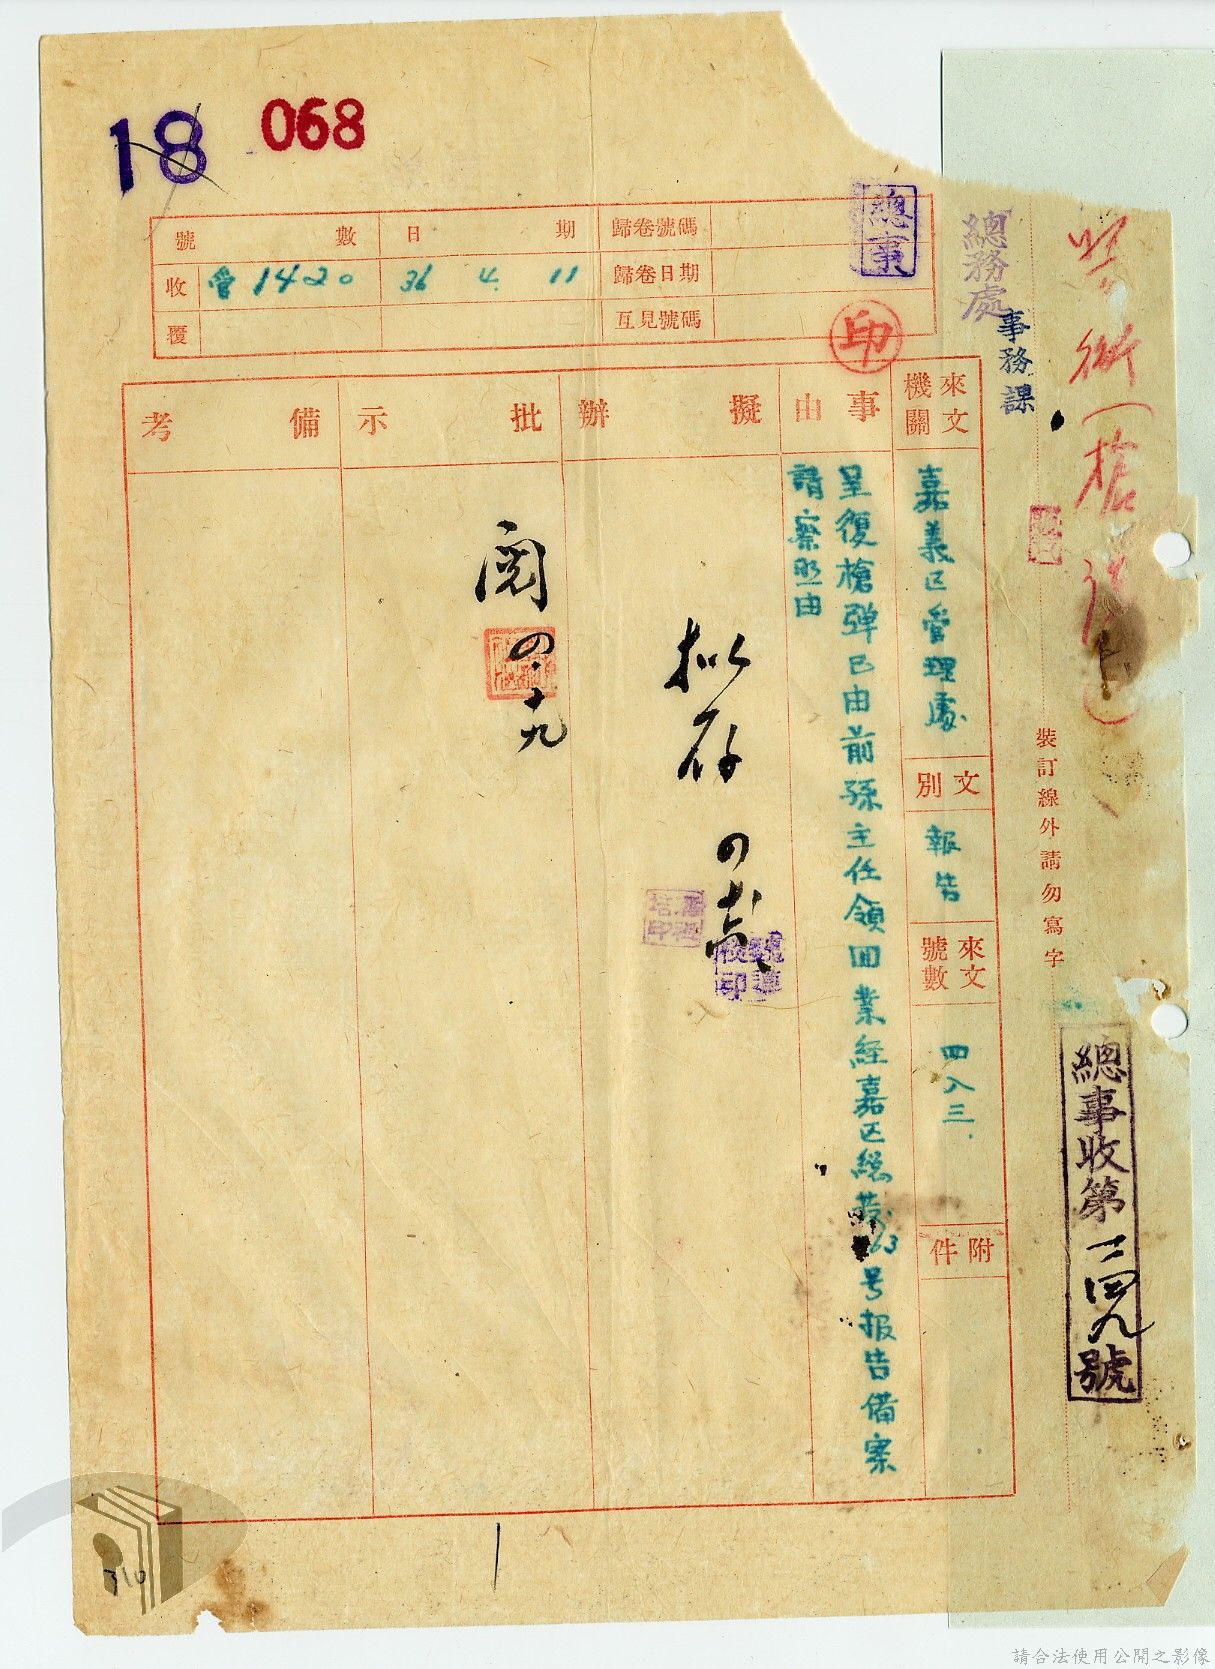 18
068
號數
日期
歸卷號碼
收
1420
36 4. 11
歸卷日期
覆
互見號碼
總事
印
總務處
事務課
警衛(槍
裝訂線外請勿寫字
總事收第
四九
號
來文機關
嘉義區管理處
文別
報告
來文號數
四八三.
附件
事由
呈復槍彈已由前孫主任領回業經嘉區總
63号报告備案
請察照由
擬辦
拟存
批示
閱 四.十九
備考
310
請合法使用公開之影像